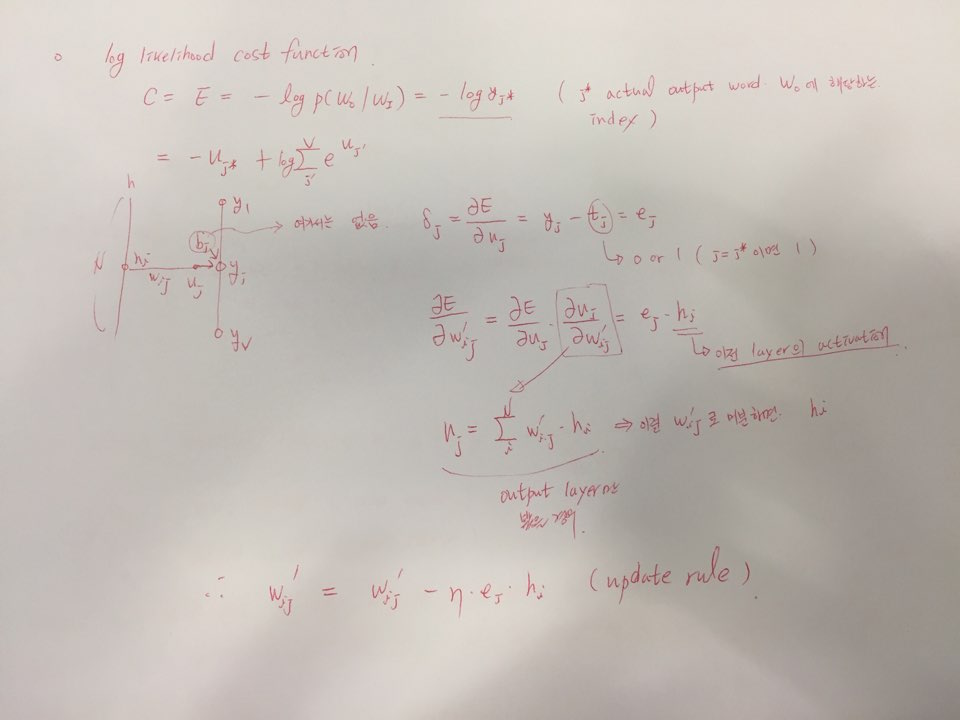 o log likelihood cost function.
C = E = - log p(w_o | w_I) = - log y_j* ( j* actual output word. w_o 에 해당하는
index )
= - u_j* + log Σ_j'^V e^{u_j'}
h
y_1
b_j → 여기서는 없음.
N h_i w_ij' u_j y_j
y_V
δ_j = ∂E/∂u_j = y_j - t_j = e_j
↳ 0 or 1 ( j = j* 이면 1 )
∂E/∂w'_ij = ∂E/∂u_j · ∂u_j/∂w'_ij = e_j · h_i
↳ 이전 layer의 activation.
u_j = Σ_i^N w'_ij · h_i ⇒ 이걸 w'_ij 로 미분하면. h_i
output layer만
∴ w_ij' = w_ij' - η · e_j · h_i (update rule)